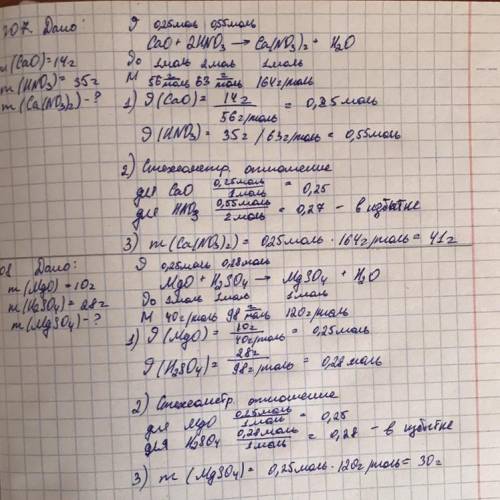 207. Дано:
m(CaO)=14г
m(HNO3)=35г
m(Ca(NO3)2)-?
ϑ 0,25моль 0,55моль
CaO+2HNO3 → Ca(NO3)2 + H2O
До 1моль 2моль 1моль
М 56 г/моль 63 г/моль 164г/моль
1) ϑ(CaO) = 14г / 56г/моль = 0,25моль
ϑ(HNO3) = 35г / 63г/моль = 0,55моль
2) Стехеометр. отношение
для CaO 0,25моль / 1моль = 0,25
для HNO3 0,55моль / 2моль = 0,27 - в избытке
3) m(Ca(NO3)2) = 0,25моль · 164г/моль = 41г
08 Дано:
m(MgO) = 10г
m(H2SO4) = 28г
m(MgSO4) - ?
ϑ 0,25моль 0,28моль
MgO + H2SO4 → MgSO4 + H2O
До 1моль 1моль 1моль
М 40г/моль 98 г/моль 120г/моль
1) ϑ(MgO) = 10г / 40г/моль = 0,25моль
ϑ(H2SO4) = 28г / 98г/моль = 0,28моль
2) Стехеометр. отношение
для MgO 0,25моль / 1моль = 0,25
для H2SO4 0,28моль / 1моль = 0,28 - в избытке
3) m(MgSO4) = 0,25моль · 120г/моль = 30г